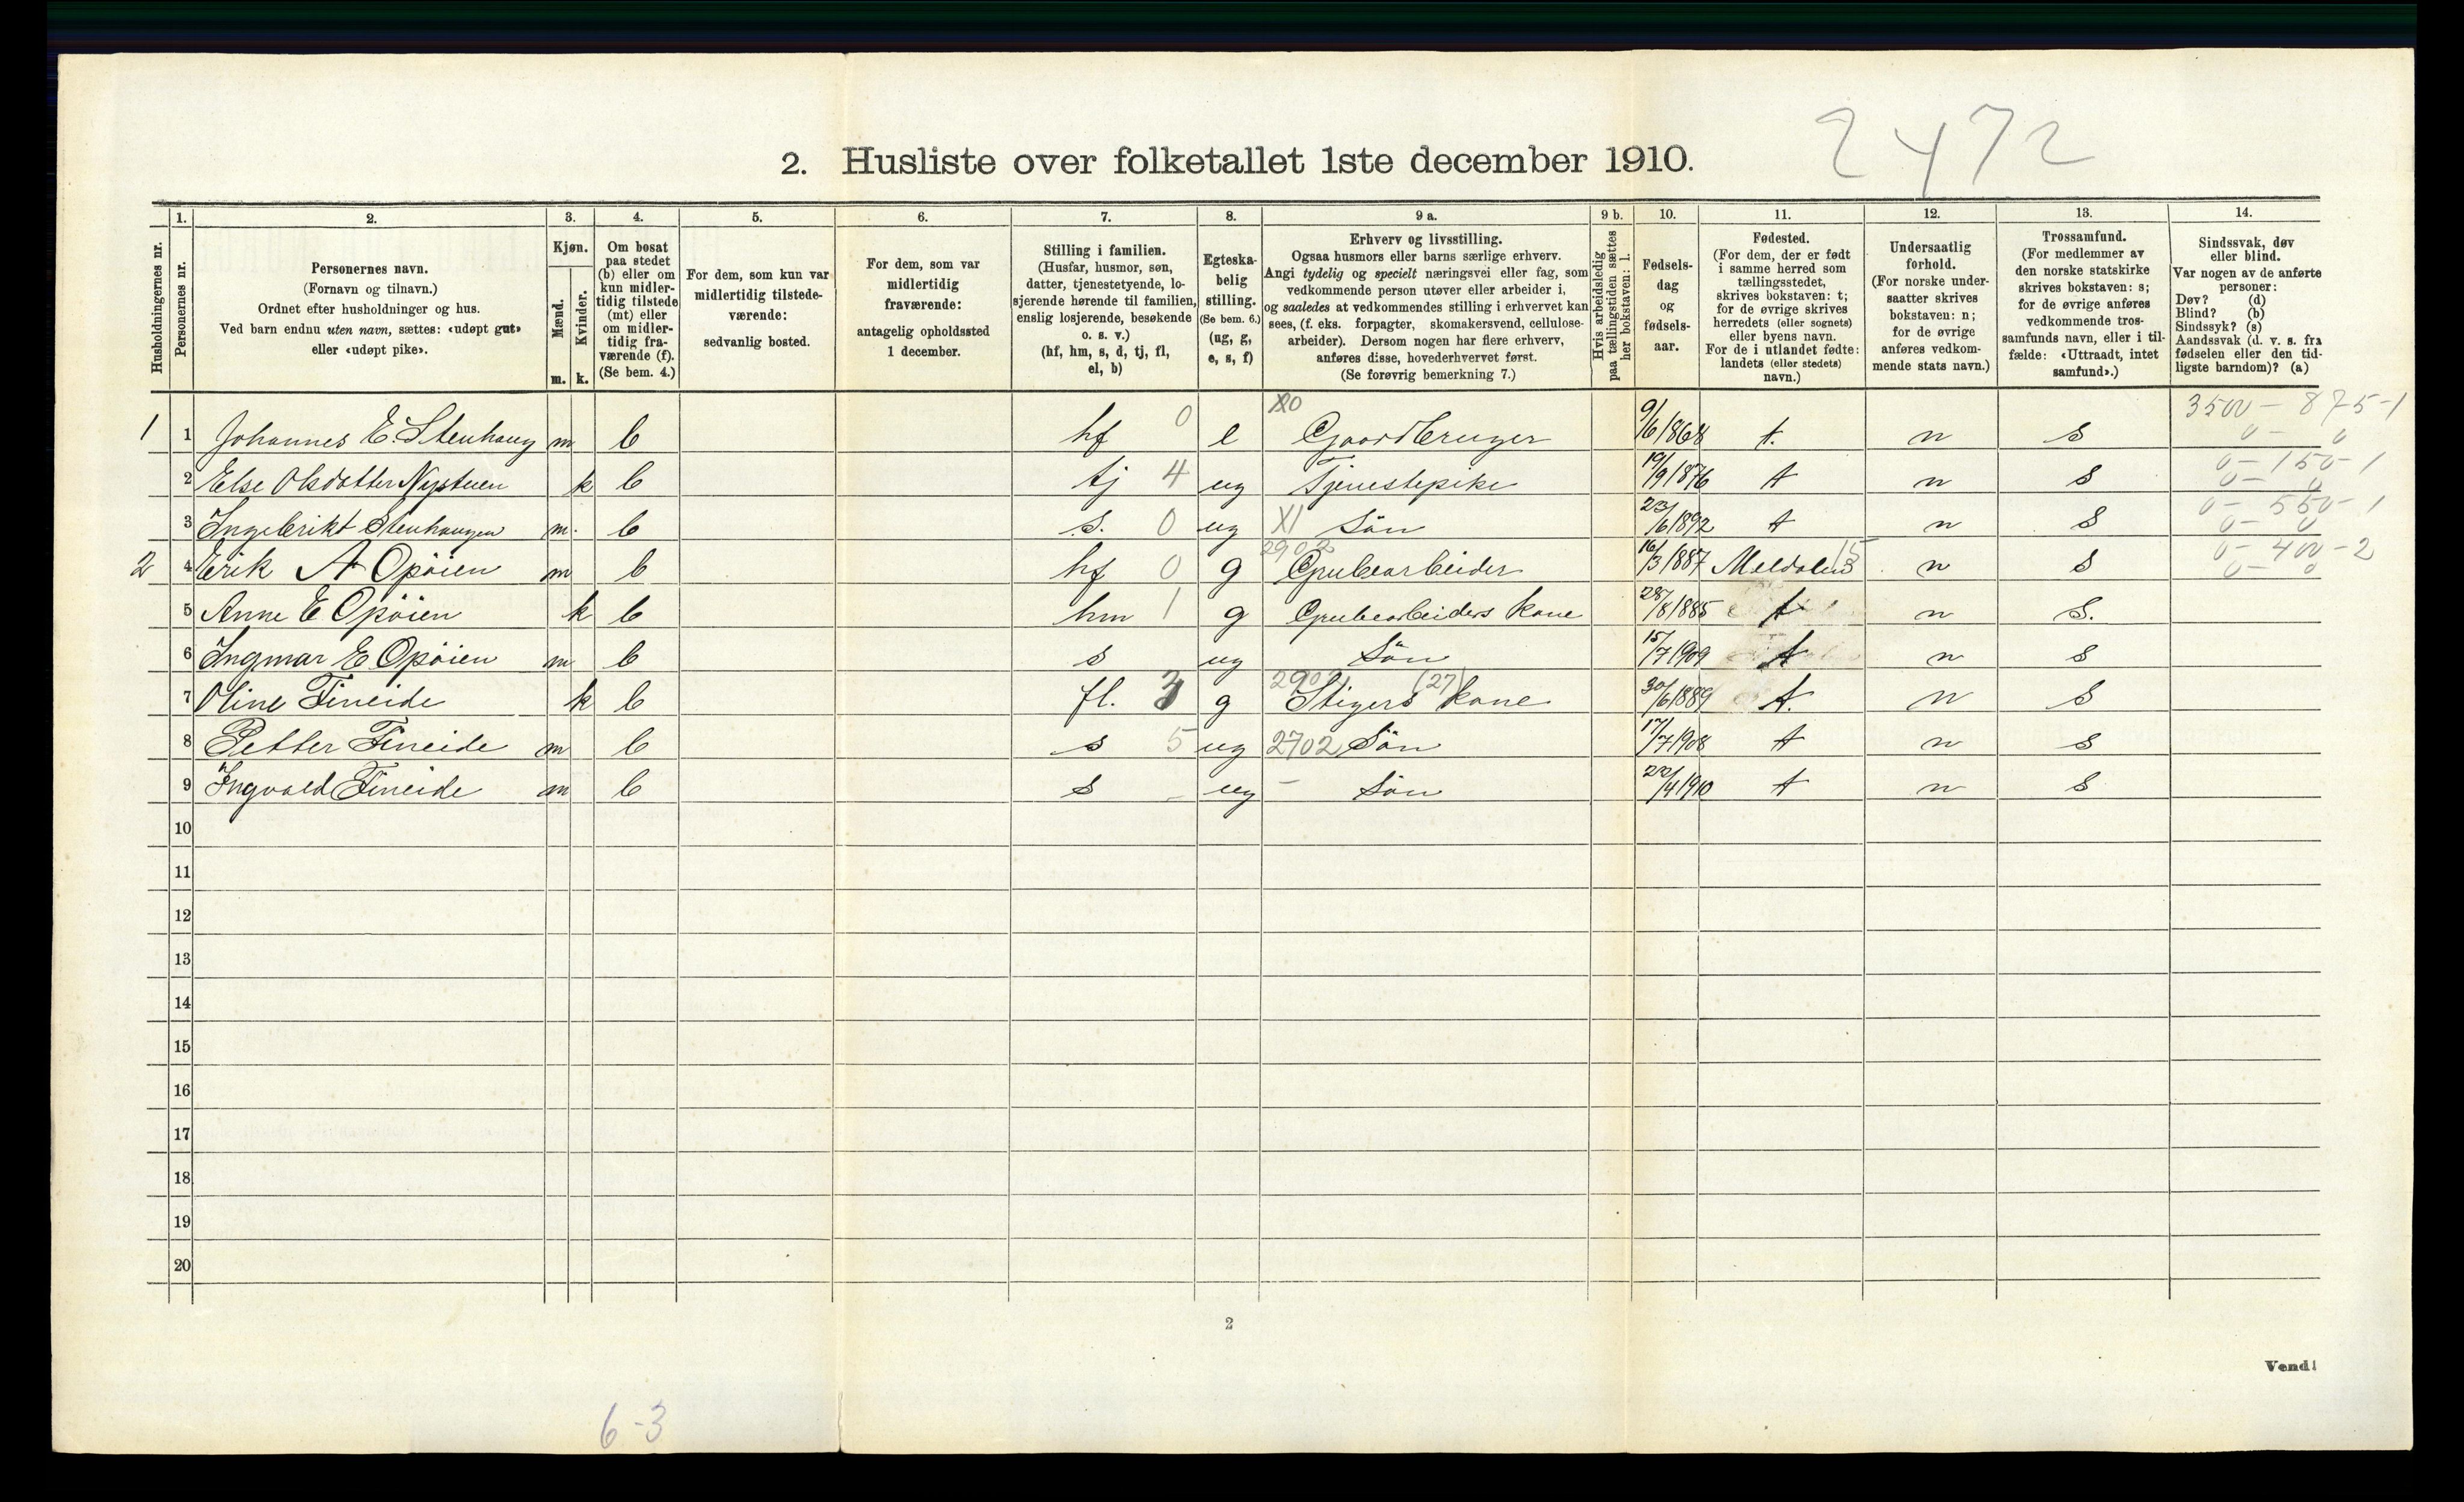 2472
2. Husliste over folketallet 1ste december 1910.
Husholdningernes nr.
1.
Personernes nr.
2.
Personernes navn.
(Fornavn og tilnavn.)
Ordnet efter husholdninger og hus.
Ved barn endnu uten navn, sættes: «udøpt gut»
eller «udøpt pike».
3.
Kjøn.
Mænd. Kvinder.
m. k.
4.
Om bosat
paa stedet
(b) eller om
kun midler-
tidig tilstede
(mt) eller
om midler-
tidig fra-
værende (f).
(Se bem. 4.)
5.
For dem, som kun var
midlertidig tilstede-
værende:
sedvanlig bosted.
6.
For dem, som var
midlertidig
fraværende:
antagelig opholdssted
1 december.
7.
Stilling i familien.
(Husfar, husmor, søn,
datter, tjenestetyende, lo-
sjerende hørende til familien,
enslig losjerende, besøkende
o. s. v.)
(hf, hm, s, d, tj, fl,
el, b)
8.
Egteska-
belig
stilling.
(Se bem. 6.)
(ug, g,
e, s, f)
9 a.
Erhverv og livsstilling.
Ogsaa husmors eller barns særlige erhverv.
Angi tydelig og specielt næringsvei eller fag, som
vedkommende person utøver eller arbeider i,
og saaledes at vedkommendes stilling i erhvervet kan
sees, (f. eks. forpagter, skomakersvend, cellulose-
arbeider). Dersom nogen har flere erhverv,
anføres disse, hovederhvervet først.
(Se forøvrig bemerkning 7.)
9 b.
Hvis arbeidsledig
paa tællingstiden sættes
her bokstaven: l.
10.
Fødsels-
dag
og
fødsels-
aar.
11.
Fødested.
(For dem, der er født
i samme herred som
tællingsstedet,
skrives bokstaven: t;
for de øvrige skrives
herredets (eller sognets)
eller byens navn.
For de i utlandet fødte:
landets (eller stedets)
navn.)
12.
Undersaatlig
forhold.
(For norske under-
saatter skrives
bokstaven: n;
for de øvrige
anføres vedkom-
mende stats navn.)
13.
Trossamfund.
(For medlemmer av
den norske statskirke
skrives bokstaven: s;
for de øvrige anføres
vedkommende tros-
samfunds navn, eller i til-
fælde: «Uttraadt, intet
samfund».)
14.
Sindssvak, døv
eller blind.
Var nogen av de anførte
personer:
Døv? (d)
Blind? (b)
Sindssyk? (s)
Aandssvak (d. v. s. fra
fødselen eller den tid-
ligste barndom)? (a)
1 1 Johannes E. Stenhaug m b hf 0 e X0 Gaardbruger 9/6 1868 t. n s 3500 - 875-1 0 - 0
2 Else Olsdatter Nystuen k b tj 4 ug Tjenestepike 19/9 1876 t n s 0 - 150 - 1 0 - 0
3 Ingebrikt Stenhaugen m. b s. 0 ug XI Sön 23/6 1892 t n s 0 - 550 - 1 0 - 0
2 4 Erik A Opöien m b hf 0 g 2902 Grubearbeider 16/3 1887 Meldalen 15 n s 0 - 400 - 2 0 - 0
5 Anne E Opöien k b hm 1 g Grubearbeiders kone 28/8 1885 t n s.
6 Ingmar E Opöien m b s ug Sön 15/7 1909 t n s
7 Oline Fineide k b fl. 3 g 2902 (27) Stigers kone 30/6 1889 t. n s
8 Petter Fineide m b s 5 ug 2702 Sön 17/7 1908 t n s
9 Ingvald Fineide m b s - ug - Sön 22/4 1910 t n s
10
11
12
13
14
15
16
17
18
19
20
2
Vend!
6-3